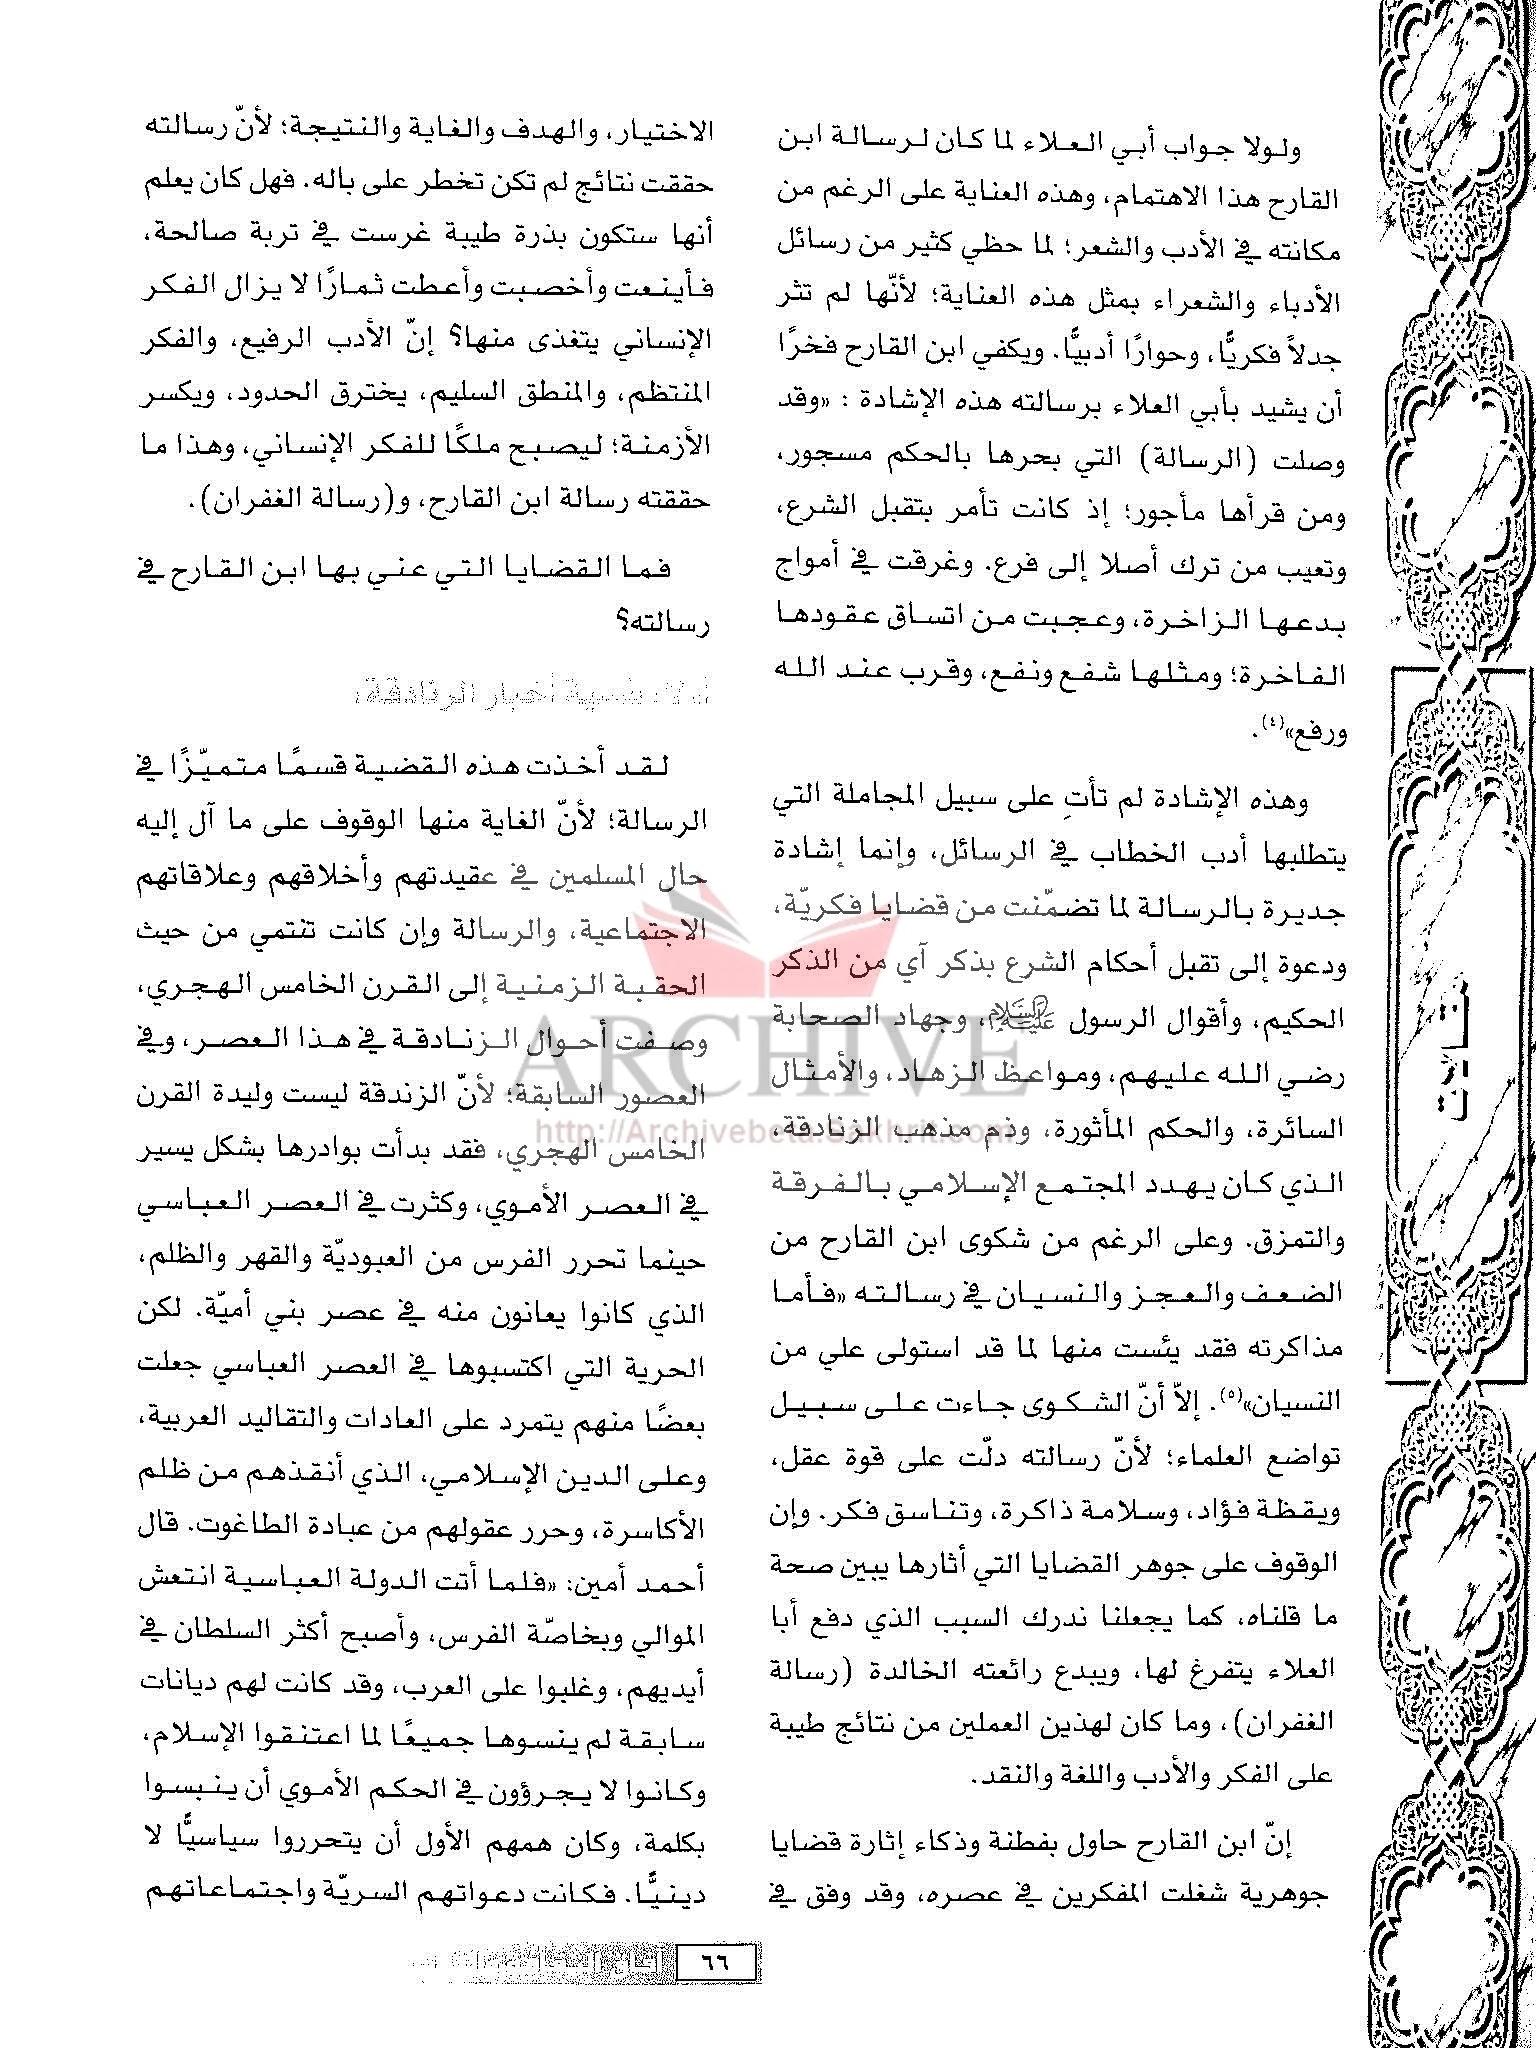 ولولا جواب أبي العلاء لما كان لرسالة ابن
القارح هذا الاهتمام، وهذه العناية على الرغم من
مكانته في الأدب والشعر؛ لما حظي كثير من رسائل
الأدباء والشعراء بمثل هذه العناية؛ لأنّها لم تثر
جدلاً فكريًّا، وحوارًا أدبيًّا. ويكفي ابن القارح فخرًا
أن يشيد بأبي العلاء برسالته هذه الإشادة : «وقد
وصلت (الرسالة) التي بحرها بالحكم مسجور،
ومن قرأها مأجور؛ إذ كانت تأمر بتقبل الشرع،
وتعيب من ترك أصلا إلى فرع. وغرقت في أمواج
بدعها الزاخرة، وعجبت من اتساق عقودها
الفاخرة؛ ومثلها شفع ونفع، وقرب عند الله
ورفع»(٤).
وهذه الإشادة لم تأتِ على سبيل المجاملة التي
يتطلبها أدب الخطاب في الرسائل، وإنما إشادة
جديرة بالرسالة لما تضمّنت من قضايا فكريّة،
ودعوة إلى تقبل أحكام الشرع بذكر آي من الذكر
الحكيم، وأقوال الرسول عليه السلام، وجهاد الصحابة
رضي الله عليهم، ومواعظ الزهاد، والأمثال
السائرة، والحكم المأثورة، وذم مذهب الزنادقة،
الذي كان يهدد المجتمع الإسلامي بالفرقة
والتمزق. وعلى الرغم من شكوى ابن القارح من
الضعف والعجز والنسيان في رسالته «فأما
مذاكرته فقد يئست منها لما قد استولى علي من
النسيان»(٥). إلاّ أنّ الشكوى جاءت على سبيل
تواضع العلماء؛ لأنّ رسالته دلّت على قوة عقل،
ويقظة فؤاد، وسلامة ذاكرة، وتناسق فكر. وإن
الوقوف على جوهر القضايا التي أثارها يبين صحة
ما قلناه، كما يجعلنا ندرك السبب الذي دفع أبا
العلاء يتفرغ لها، ويبدع رائعته الخالدة (رسالة
الغفران)، وما كان لهذين العملين من نتائج طيبة
على الفكر والأدب واللغة والنقد.
إنّ ابن القارح حاول بفطنة وذكاء إثارة قضايا
جوهرية شغلت المفكرين في عصره، وقد وفق في
الاختيار، والهدف والغاية والنتيجة؛ لأنّ رسالته
حققت نتائج لم تكن تخطر على باله. فهل كان يعلم
أنها ستكون بذرة طيبة غرست في تربة صالحة،
فأينعت وأخصبت وأعطت ثمارًا لا يزال الفكر
الإنساني يتغذى منها؟ إنّ الأدب الرفيع، والفكر
المنتظم، والمنطق السليم، يخترق الحدود، ويكسر
الأزمنة؛ ليصبح ملكًا للفكر الإنساني، وهذا ما
حققته رسالة ابن القارح، و(رسالة الغفران).
فما القضايا التي عني بها ابن القارح في
رسالته؟
أخبار الزنادقة:
لقد أخذت هذه القضية قسمًا متميّزًا في
الرسالة؛ لأنّ الغاية منها الوقوف على ما آل إليه
حال المسلمين في عقيدتهم وأخلاقهم وعلاقاتهم
الاجتماعية، والرسالة وإن كانت تنتمي من حيث
الحقبة الزمنية إلى القرن الخامس الهجري،
وصفت أحوال الزنادقة في هذا العصر، وفي
العصور السابقة؛ لأنّ الزندقة ليست وليدة القرن
الخامس الهجري، فقد بدأت بوادرها بشكل يسير
في العصر الأموي، وكثرت في العصر العباسي
حينما تحرر الفرس من العبوديّة والقهر والظلم،
الذي كانوا يعانون منه في عصر بني أميّة. لكن
الحرية التي اكتسبوها في العصر العباسي جعلت
بعضًا منهم يتمرد على العادات والتقاليد العربية،
وعلى الدين الإسلامي، الذي أنقذهم من ظلم
الأكاسرة، وحرر عقولهم من عبادة الطاغوت. قال
أحمد أمين: «فلما أتت الدولة العباسية انتعش
الموالي وبخاصّة الفرس، وأصبح أكثر السلطان في
أيديهم، وغلبوا على العرب، وقد كانت لهم ديانات
سابقة لم ينسوها جميعًا لما اعتنقوا الإسلام،
وكانوا لا يجرؤون في الحكم الأموي أن ينبسوا
بكلمة، وكان همهم الأول أن يتحرروا سياسيًّا لا
دينيًّا. فكانت دعواتهم السريّة واجتماعاتهم
مقالات
ARCHIVE
٦٦